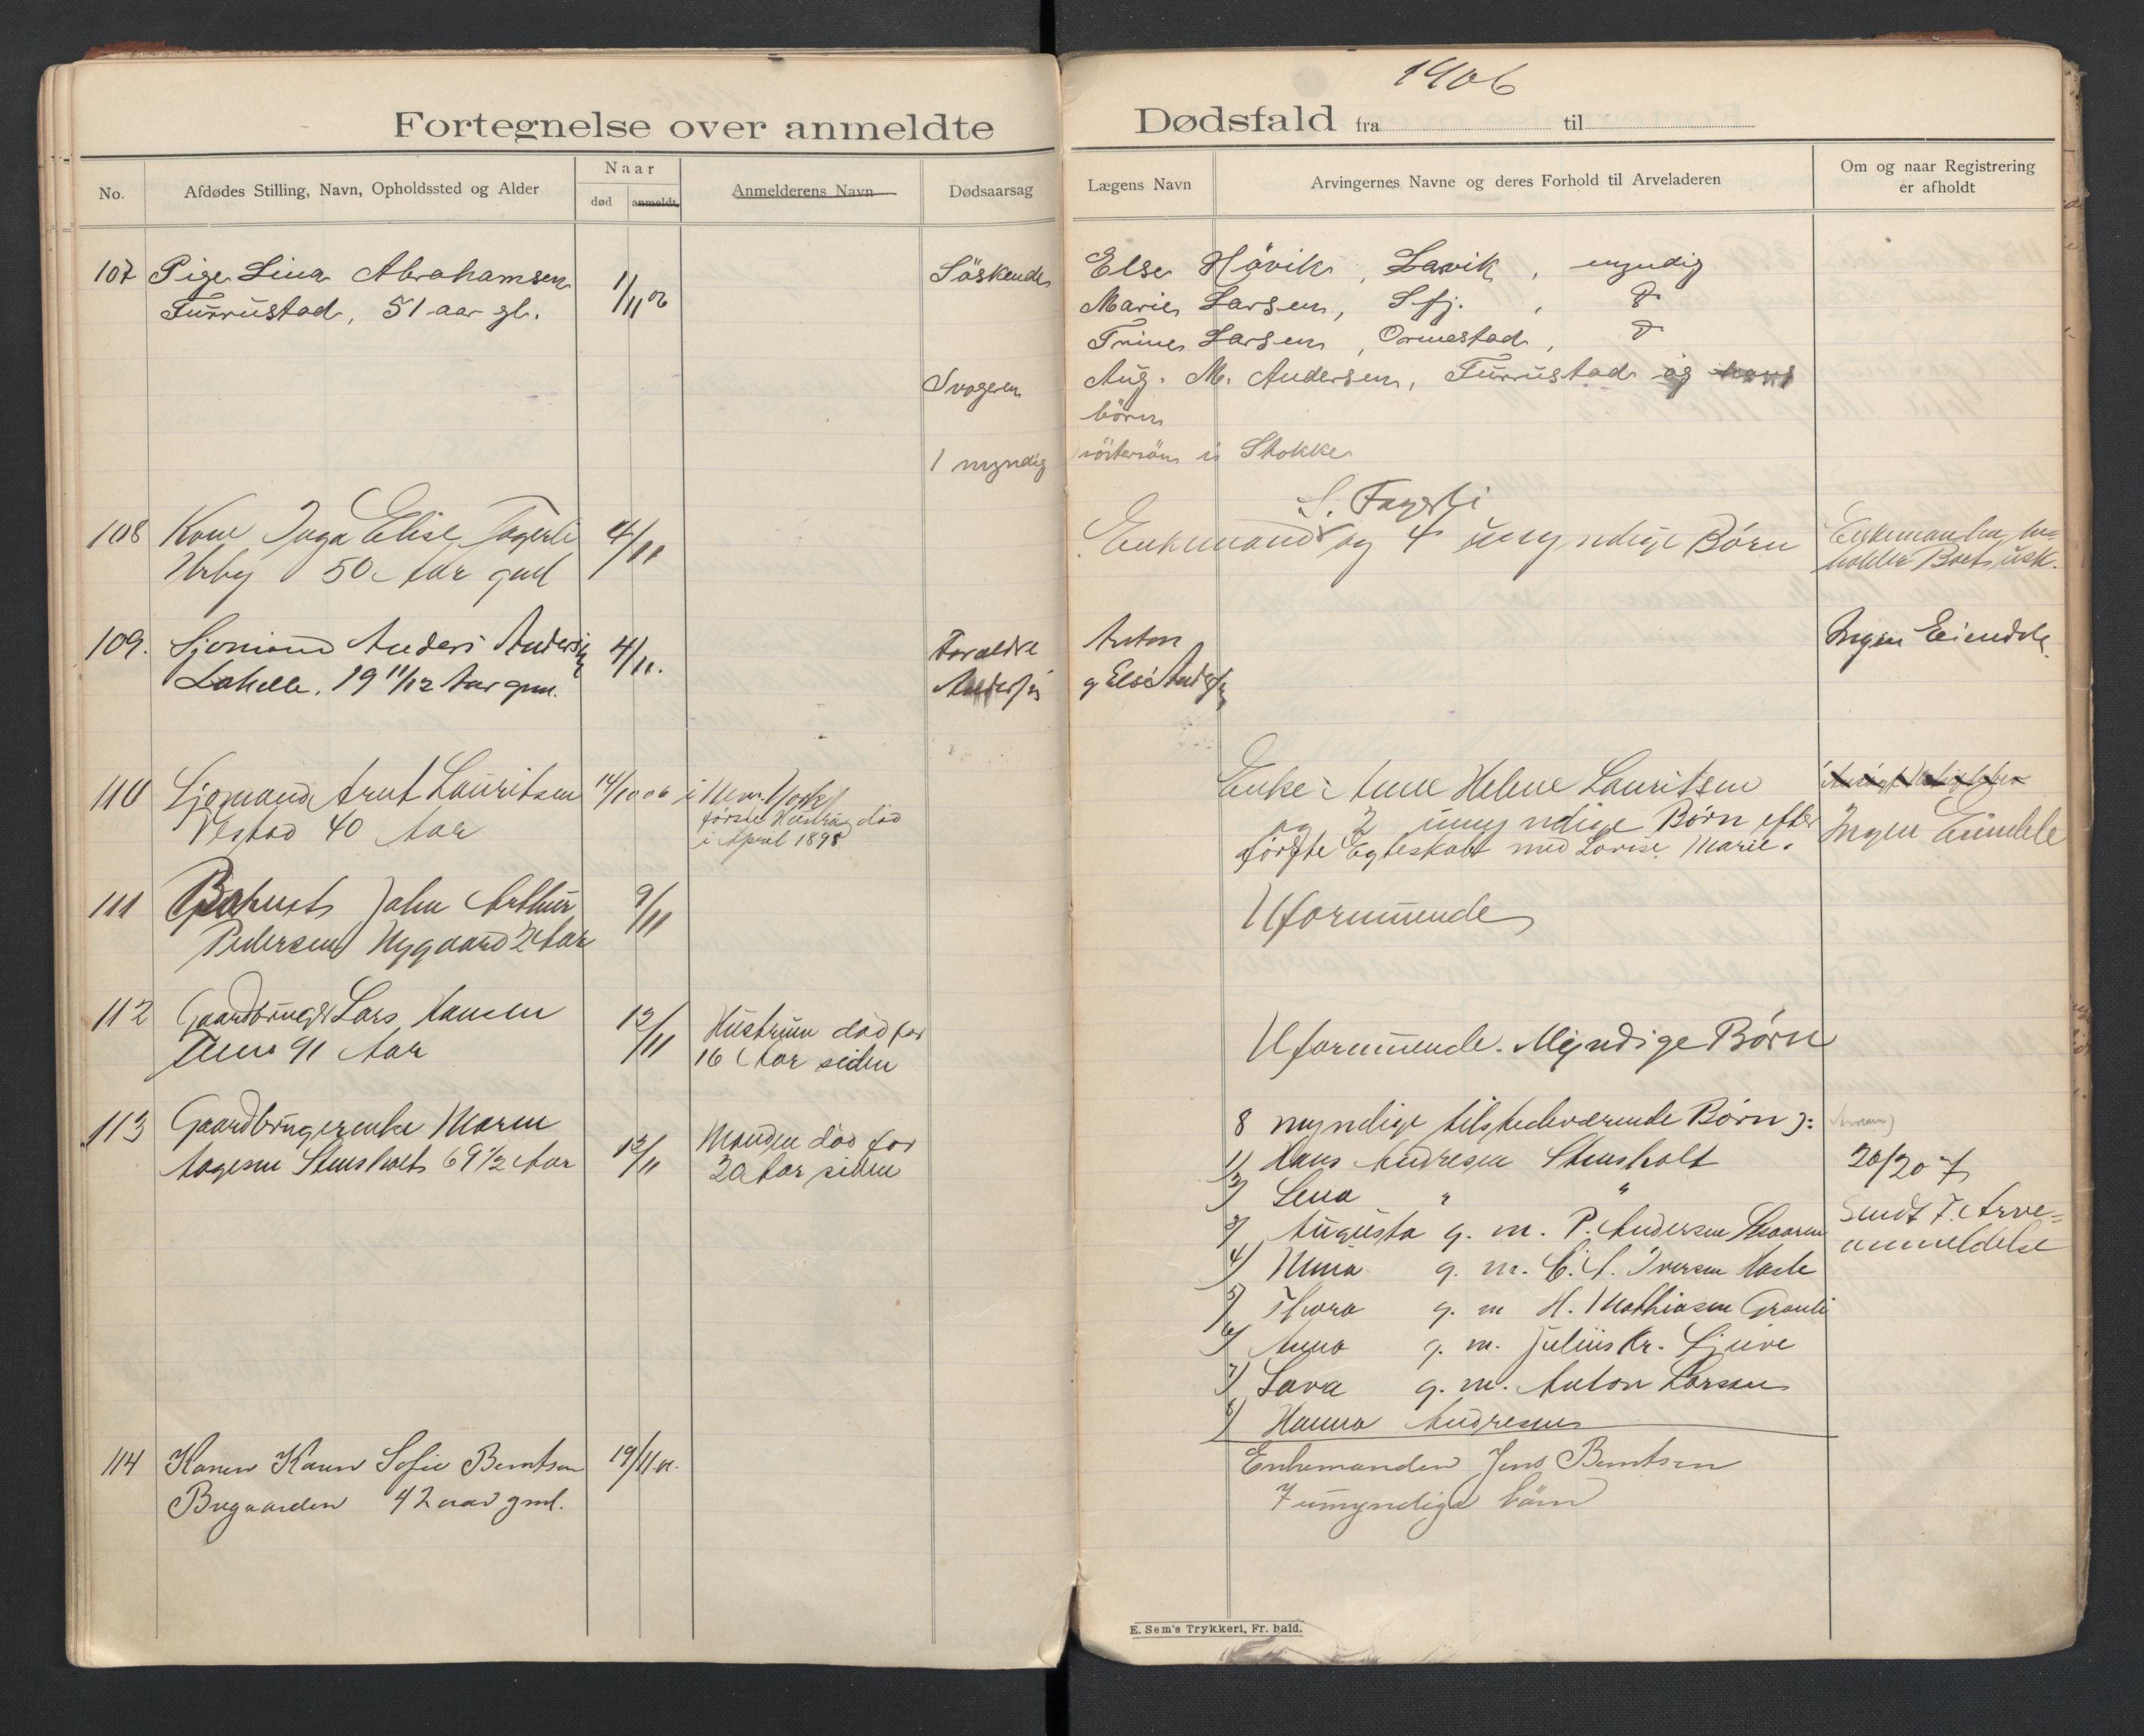 1906
Fortegnelse over anmeldte Dødsfald fra til
No.
Afdødes Stilling, Navn, Opholdssted og Alder
Naar
død
anmeldt.
Anmelderens Navn
Dødsaarsag
Lægens Navn
Arvingernes Navne og deres Forhold til Arveladeren
Om og naar Registrering
er afholdt
107 Pige Lina Abrahamsen
Furrustad, 51 aar gl.
1/11 06
Söskende
Else Hövik, Larvik, myndig
Marie Larsen, Sfj.,
Trine Larsen, Ormestad,
Svogeren
Aug. M. Andersen, Furrustad og hans
börn
1 myndig
söstersön i Stokke
108 Kone Inga Elise Fagerli
Urby 50 Aar gml
4/11
S. Fagerli
Enkemand og 4 umyndige Børn
Enkemanden be-
holder Boet usk.
109. Sjømand Anders Andersen
Lahelle. 19 11/12 Aar gml.
4/11.
Forældre
Anton
og Else Andersen
Ingen Eiendele.
110 Sjømand Arnt Lauritsen
Vestad 40 Aar
14/10 06
i New York
første Hustru død
i April 1898
Enke: Anne Helene Lauritsen
og 2 umyndige Børn efter
første Egteskabt med Lovise Marie.
Ingen Eiendele
111 John Arthur
Pedersen Nygaard 2 Aar
9/11
Uformuende
112 Gaardbruger Lars Hansen
91 Aar
12/11
Hustruen død for
16 Aar siden
Uformuende. Myndige Børn
113 Gaardbrugerenke Maren
Aagesen Stensholt 69 1/2 Aar
12/11
Manden død for
20 Aar siden
8 myndige tilstedeværende Børn):
1) Hans Andresen Stensholt
2) Lena " "
3) Augusta g. m. P. Andersen Skaaren
4) Mina g. m. C. A. Iversen Hasle
5) Thora g. m H. Mathiasen Granli
6) Anna g. m. Julius Kr. Sjuve
7) Lava g. m. Anton Larsen
8) Hanna Andresen
20/20 7
Sendt F. Arve-
anmeldelse
114 Konen Karen Sofie Berntsen
Bugaarden 42 aar gml.
19/11.06.
Enkemanden Jens Berntsen
7 umyndige børn
E. Sem's Trykkeri, Fr. hald.